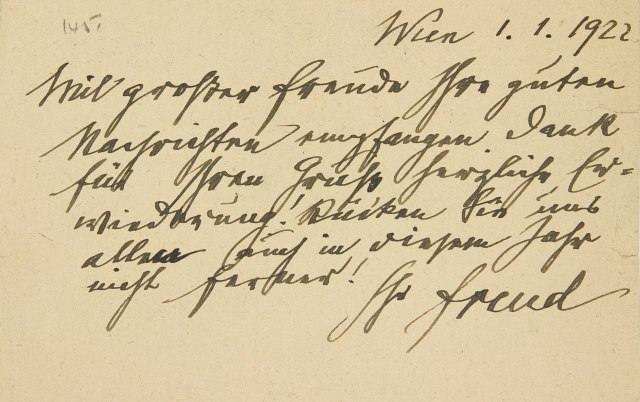 145.
Wien 1. 1. 1922
Mit großer Freude Ihre guten
Nachrichten empfangen. Dank
für Ihren Gruß, herzliche Er=
wiederung! Rücken Sie uns
allen auch in diesem Jahr
nicht ferner!
Ihr Freud